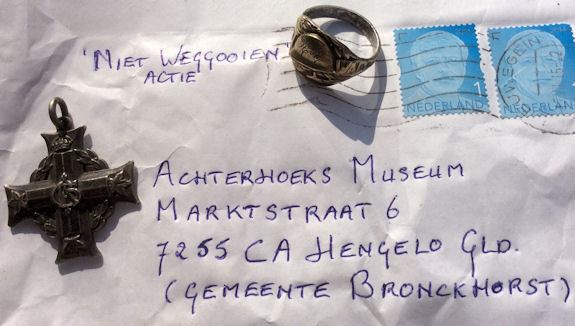 'NIET WEGGOOIEN'
ACTIE
1
NEDERLAND
NEDERLAND
ACHTERHOEKS MUSEUM
MARKTSTRAAT 6
7255 CA HENGELO GLD.
(GEMEENTE BRONCKHORST)